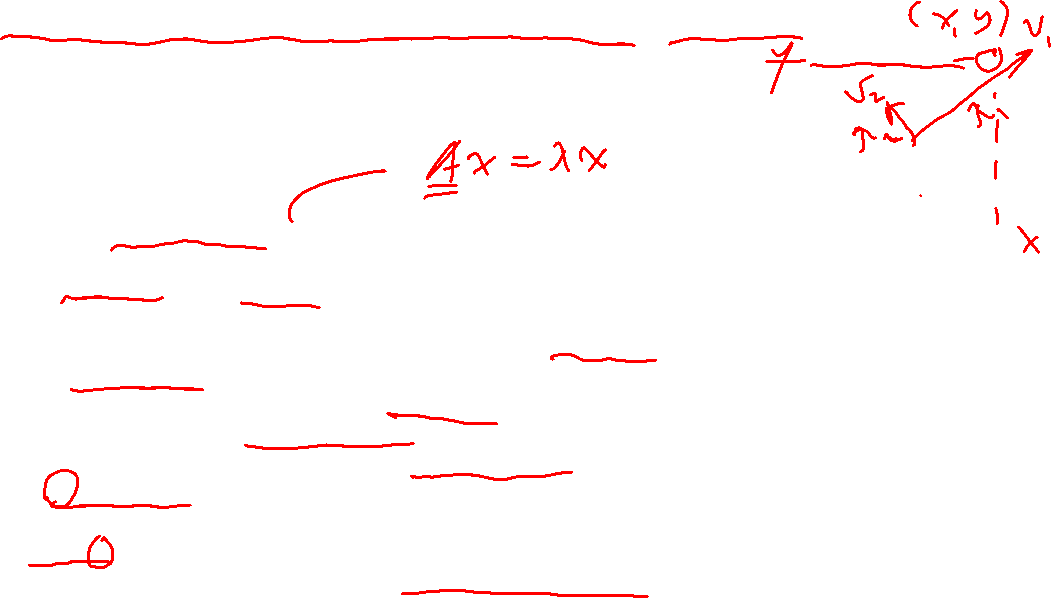 (x, y) v₁
y
v₂
λ₂ λ₁
A x = λ x
x